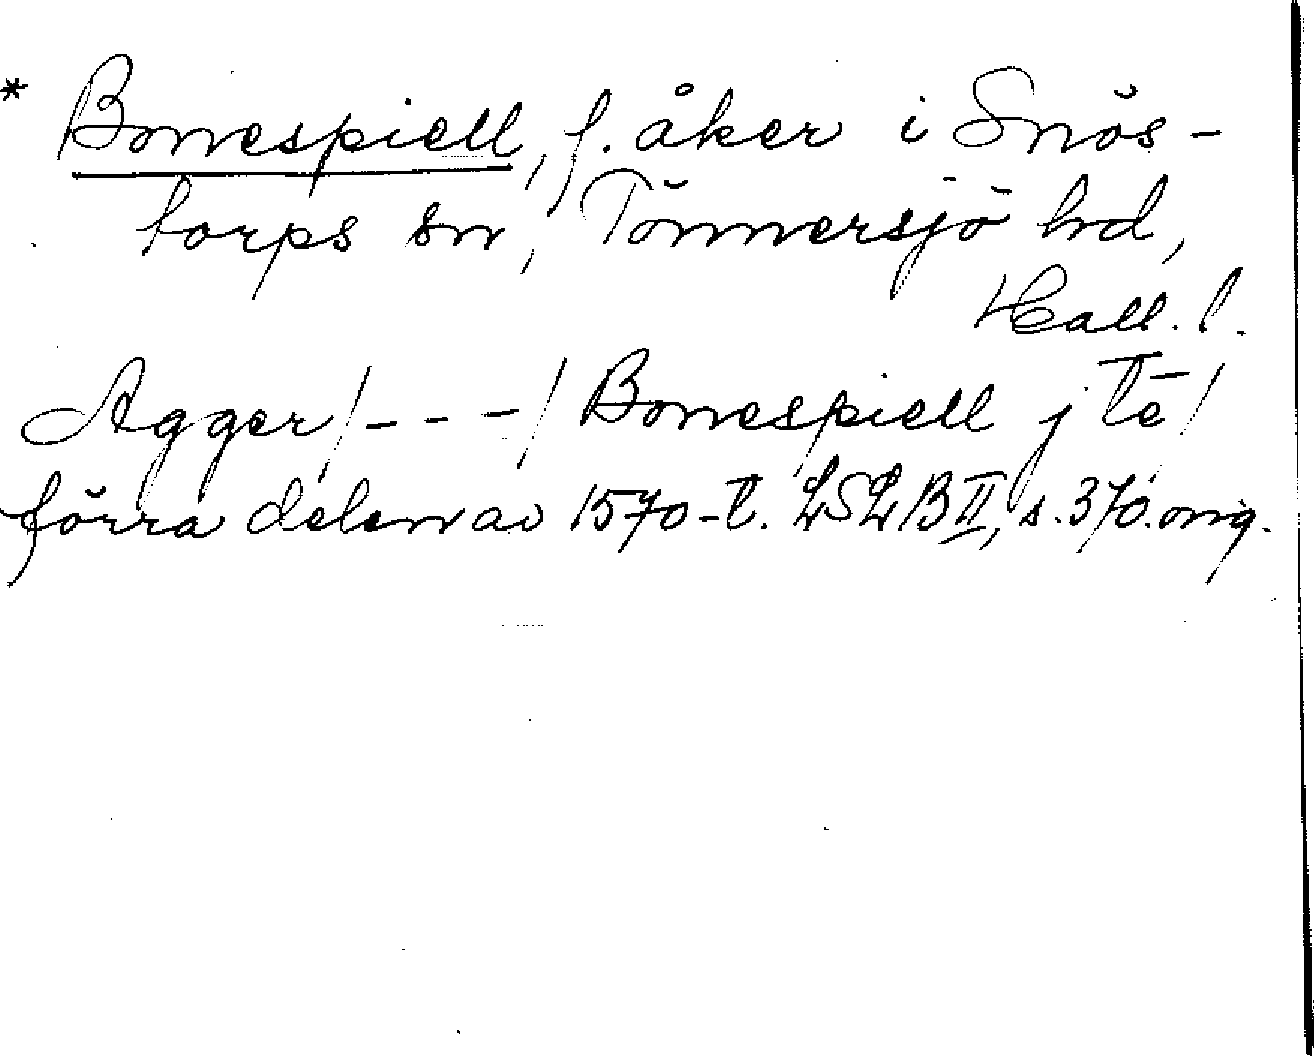 * Bonespiell, f. åker i Snös-
torps sn, Tönnersjö hd,
Hall. l.
Agger /---/ Bonespiell j te /
förra delen av 1570-t. LSLB II, s. 370. orig.